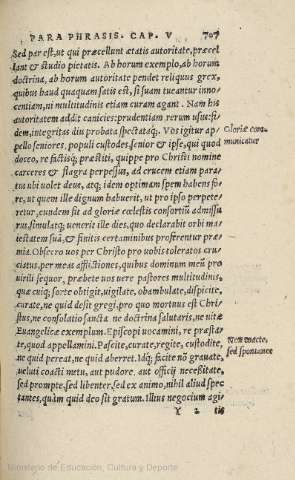 PARAPHRASIS. CAP. V 707
Sed par est, ut qui præcellunt ætatis autoritate, præcel
lant & studio pietatis. Ab horum exemplo, ab horum
doctrina, ab horum autoritate pendet reliquus grex,
quibus haud quaquam satis est, si suam tueantur inno
centiam, ni multitudinis etiam curam agant. Nam his
autoritatem addit canicies: prudentiam rerum usus: fi
dem, integritas diu probata spectataq;. Vos igitur ap
pello seniores, populi custodes, senior & ipse, qui quod
doceo, re factisq; præstiti, quippe pro Christi nomine
carceres & flagra perpessus, ad crucem etiam para=
tus ubi uolet deus, atq; idem optimam spem habens fo
re, ut quem ille dignum habuerit, ut pro ipso perpete
retur, eundem sit ad gloriæ cœlestis consortiũ admissu
rus, simulatq; uenerit ille dies, quo declarabit orbi ma
iestatem suã, & finitis certaminibus proferentur præ
mia. Obsecro uos per Christo pro uobis toleratos cru
ciatus, per meas afflictiones, quibus dominum meũ pro
uirili sequor, præbete uos uere pastores multitudinis,
quæ cuiq; sorte obtigit, uigilate, obambulate, dispicite,
curate, ne quid desit gregi, pro quo mortuus est Chri
stus, ne consolatio sancta. ne doctrina salutaris, ne uitæ
Euangelicæ exemplum. Episcopi uocamini, re præstar
te, quod appellamini. Pascite, curate, regite, custodite,
ne quid pereat, ne quid aberret. Idq; facite nõ grauate,
ueluti coacti metu, aut pudore, aut officij necessitate,
sed prompte, sed libenter, sed ex animo, nihil aliud spec
tantes, quàm quid deo sit gratum. Illius negocium agi
Gloriæ com=
municatur
Non coacte,
sed spontanee
Y 2 tis
Ministerio de Educación, Cultura y Deporte